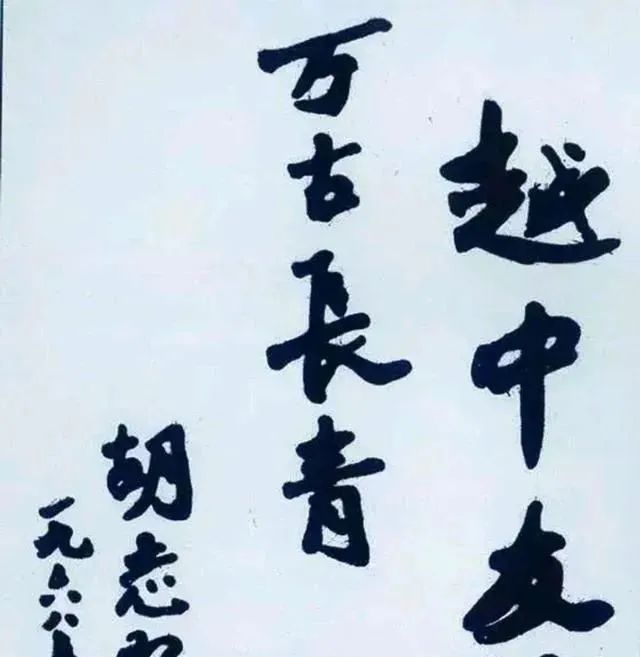 越中友
万古長青
胡志
一九六八